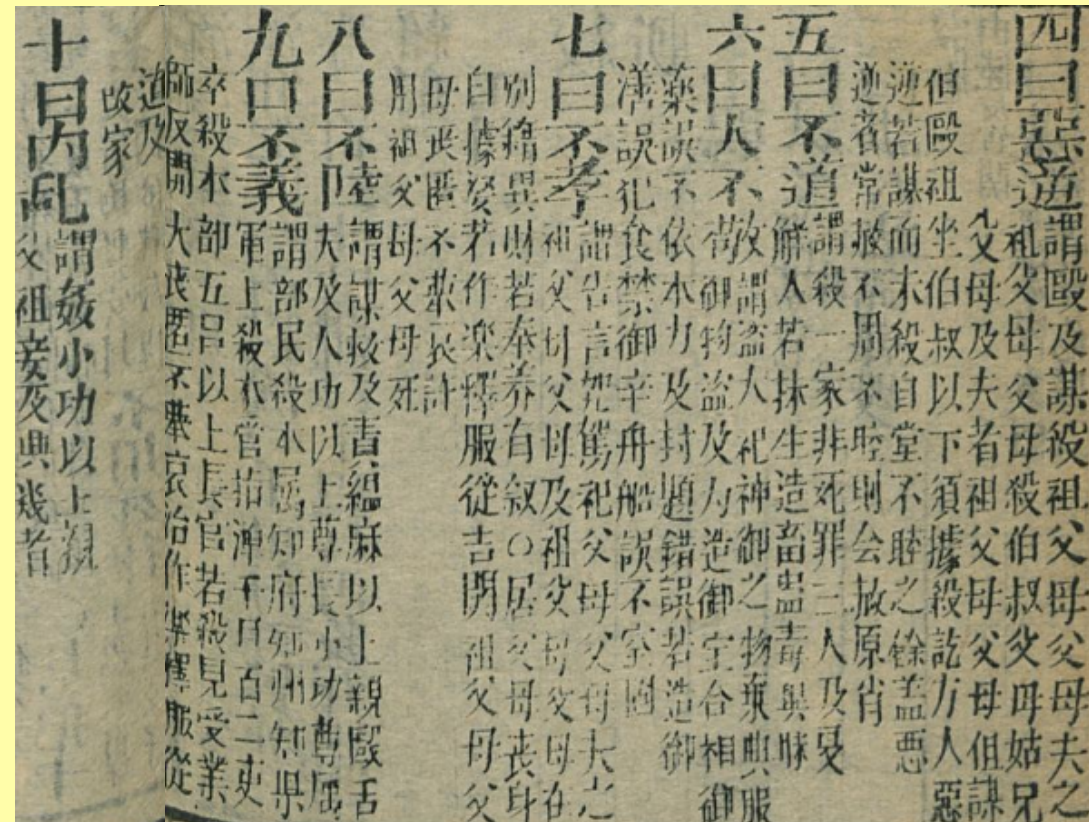 四曰惡逆謂毆及謀殺祖父母父母夫之
祖父母父母殺伯叔父母姑兄
父母及夫者祖父母父母但謀
但毆祖坐伯叔以下須據殺訖方人惡
逆若謀而未殺自堂不睦之餘盖惡
逆者常赦不周不睦則会赦原肖
五曰不道謂殺一家非死罪三人及支
觧人若抹生造畜蛊毒與昧
六曰大不故謂盗大祀神御之物乗輿服
御物盗及為造御宝合相御
藥誤不依本力及封題錯誤若造御
膳誤犯食禁御幸舟船誤不牢固
七曰不孝謂告言咒駡祀父母父母夫之
祖父母父母及祖父母父母在
別籍異財若奉养有叙〇居父母丧身
自據娶若作楽釋服從吉閗祖父母父
母丧匿不

哀許
用祖父母父母死
八曰不陸謂謀敉及賣緦麻以上親毆舌
夫及人功以上尊長小功尊属
九口不義謂部民殺本属知府知州知県
軍士殺本官指渾千日百二吏
卒殺本部五吕以上長官若殺見受業
師及閗大丧匿不舉哀治作楽釋服從
逆及
改家
十曰内乱謂姦小功以上親
父祖妾及與幾者